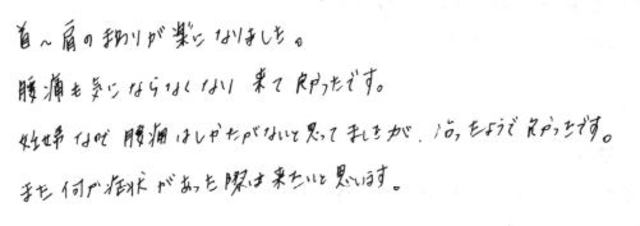 首～肩のまわりが楽になりました。
腰痛も気にならなくなり 来て良かったです。
妊婦なので 腰痛はしかたがないと思ってましたが、治ったようで良かったです。
また何か症状があった際は来たいと思います。